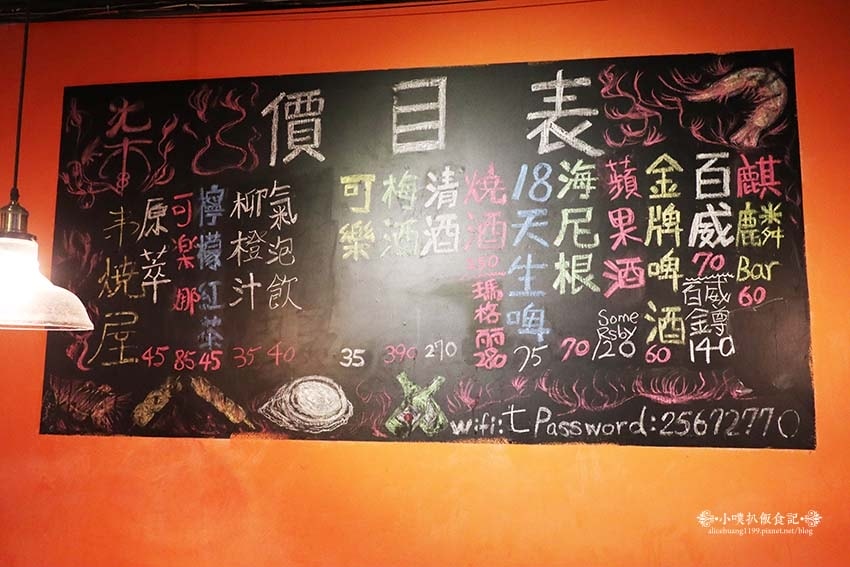 價目表
麒麟Bar 60
百威 70
百威金鐏 140
金牌啤酒 60
蘋果酒 Some Rsby 120
海尼根 70
18天生啤 75
燒酒 350
瑪格麗 280
清酒 270
梅酒 390
可樂 35
氣泡飲 40
柳橙汁 35
檸檬紅茶 45
可樂娜 85
原萃 45
柒串燒屋
wifi:七 Password:25672770
小噗扒飯食記
alicehuang1199.pixnet.net/blog